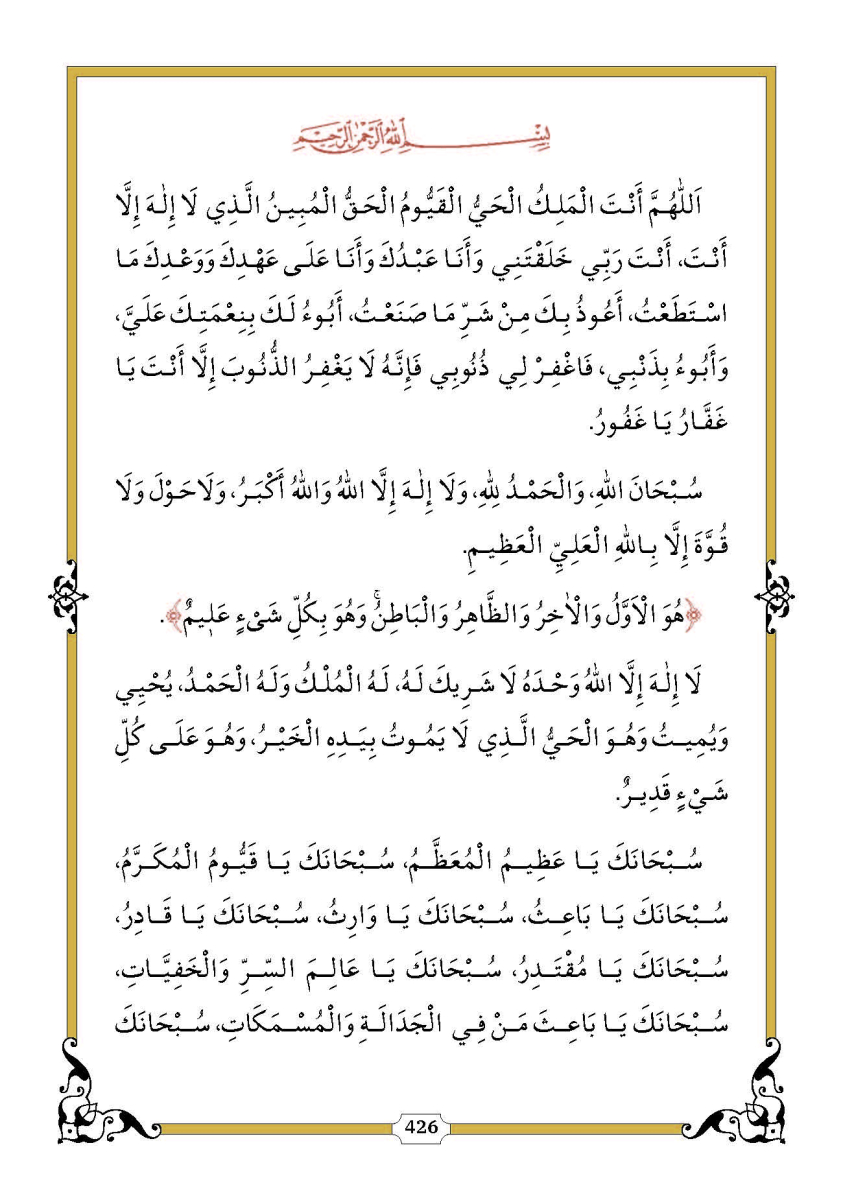 بِسْمِ اللهِ الرَّحْمٰنِ الرَّحِيمِ
اَللّٰهُمَّ أَنْتَ الْمَلِكُ الْحَيُّ الْقَيُّومُ الْحَقُّ الْمُبِينُ الَّذِي لَا إِلٰهَ إِلَّا
أَنْتَ، أَنْتَ رَبِّي خَلَقْتَنِي وَأَنَا عَبْدُكَ وَأَنَا عَلَى عَهْدِكَ وَوَعْدِكَ مَا
اسْتَطَعْتُ، أَعُوذُ بِكَ مِنْ شَرِّ مَا صَنَعْتُ، أَبُوءُ لَكَ بِنِعْمَتِكَ عَلَيَّ،
وَأَبُوءُ بِذَنْبِي، فَاغْفِرْ لِي ذُنُوبِي فَإِنَّهُ لَا يَغْفِرُ الذُّنُوبَ إِلَّا أَنْتَ يَا
غَفَّارُ يَا غَفُورُ.
سُبْحَانَ اللهِ، وَالْحَمْدُ لِلهِ، وَلَا إِلٰهَ إِلَّا اللهُ وَاللهُ أَكْبَرُ، وَلَاحَوْلَ وَلَا
قُوَّةَ إِلَّا بِاللهِ الْعَلِيِّ الْعَظِيمِ.
﴿هُوَ الْاَوَّلُ وَالْاٰخِرُ وَالظَّاهِرُ وَالْبَاطِنُۚ وَهُوَ بِكُلِّ شَىْءٍ عَلٖيمٌ﴾.
لَا إِلٰهَ إِلَّا اللهُ وَحْدَهُ لَا شَرِيكَ لَهُ، لَهُ الْمُلْكُ وَلَهُ الْحَمْدُ، يُحْيِي
وَيُمِيتُ وَهُوَ الْحَيُّ الَّذِي لَا يَمُوتُ بِيَدِهِ الْخَيْرُ، وَهُوَ عَلَى كُلِّ
شَيْءٍ قَدِيرٌ.
سُبْحَانَكَ يَا عَظِيمُ الْمُعَظَّمُ، سُبْحَانَكَ يَا قَيُّومُ الْمُكَرَّمُ،
سُبْحَانَكَ يَا بَاعِثُ، سُبْحَانَكَ يَا وَارِثُ، سُبْحَانَكَ يَا قَادِرُ،
سُبْحَانَكَ يَا مُقْتَدِرُ، سُبْحَانَكَ يَا عَالِمَ السِّرِّ وَالْخَفِيَّاتِ،
سُبْحَانَكَ يَا بَاعِثَ مَنْ فِي الْجَدَالَةِ وَالْمُسْمَكَاتِ، سُبْحَانَكَ
426